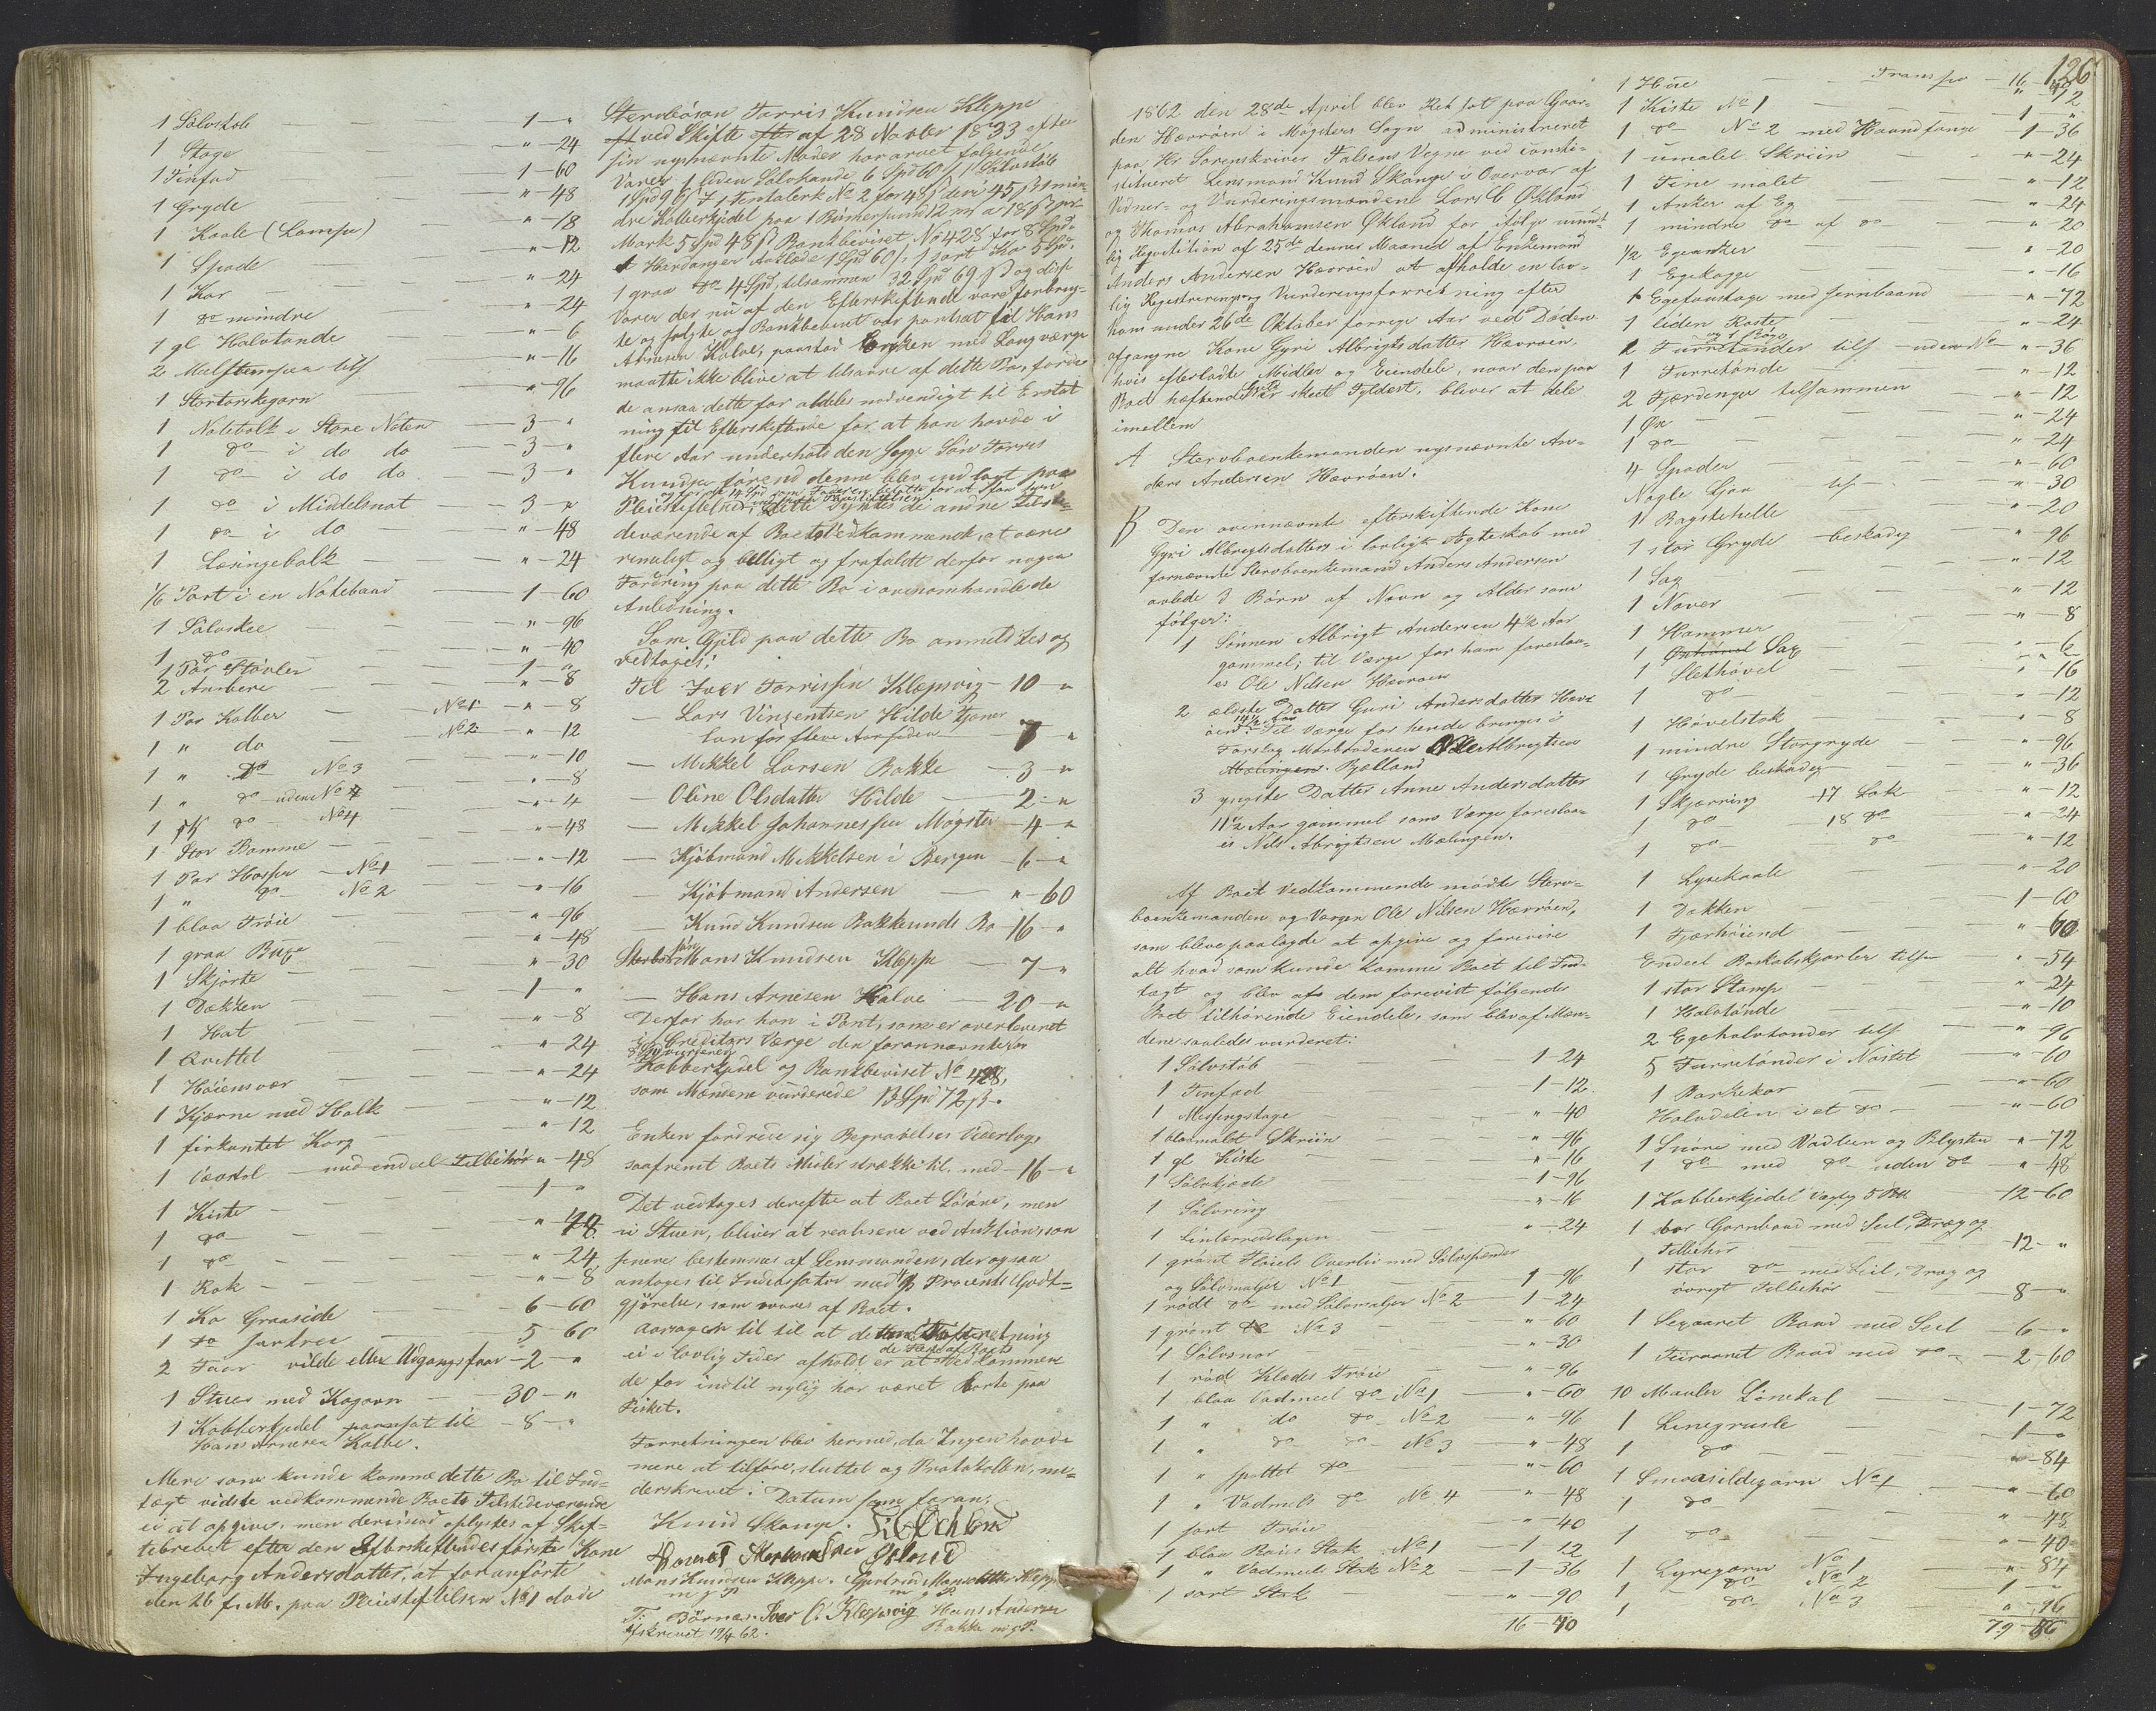 1 Sølvstob 1 "
1 Stage " 24
1 Tinfad 1 60
1 Gryde " 48
1 Kaale (Lampe) " 18
1 Spade " 12
1 Kar " 24
1 do mindre " 24
1 gl Halvtønde " 6
2 tils " 16
1 Stortorskegarn " 96
1 Notebalk i Store Noten 3 "
1 do i do do 3 "
1 do i do do 3 "
1 do i Middelsnot 3 "
1 do i do " 48
1 Læsingebalk " 24
1/6 Part i en Notebaad 1 60
1 Sølvskee " 96
1 do " 40
1 Par Støvler 1 "
2 Ambere " 8
1 Par Kalber No 1 " 8
1 " do No 2 " 12
1 " do No 3 " 10
1 " do uden No " 8
1 do No 4 " 4
1 Stor Bomme " 48
1 Par Hoser No 1 " 12
1 " do No 2 " 16
1 blaa Trøie " 96
1 graa Buxe " 48
1 Skjorte " 30
1 Dækken 1 "
1 Hat " 8
1 Qvittel " 24
1 Høiensvær " 24
1 Kjærne med Holk " 12
1 firkantet Korg " 12
1 Vævstol med endeel Tilbehør " 48
1 Kiste 1 "
1 do " 48
1 do " 24
1 Rok " 8
1 Ko Graaside 6 60
1 do 5 60
2 Faar vilde eller Udgangsfaar 2 "
1 Stue med Kogovn 30 "
1 Kobberkjedel pantsat til 8 "
Hans Arnesen Kalve.
Mere som kunde komme dette Bo til Ind-
tægt vidste vedkommende Boets Tilstedeværende
ei at opgive, men derimod oplystes af Skif-
tebrevet efter den Efterskiftendes første Kone
Ingeborg Andersdatter, at foranførte
den 26 f. M. paa Pleiestiftelsen No 1 døde
Stervbosøn Torris Knudsen Kleppe
ved Skifte af 28 Novber 1833 efter
sin nysnævnte Moder har arvet følgende
Varer 1 liden Sølvkande 6 Spd 60 ß, 1 Sølvstob
dre Kobberkjedel paa 1 Bismerpund 12 mk a 18 ß pr
Mark 5 Spd 48 ß, Bankbeviset No 428 for 8 Spd,
1 Hardanger Aaklæde 1 Spd 60 ß, 1 sort Ko 5 Spd,
1 graa do 4 Spd, tilsammen 32 Spd 69 ß og disse
Varer der nu af den Efterskiftende vare forbrug-
te og solgte og Bankbeviset var pantsat til Hans
Arnesen Kalve, paastod Enken med Laugværge
maatte ikke blive at udsvare af dette Bo, fordi
de ansaa dette for aldeles nødvendigt til Erstat
ning til Efterskiftende for at han havde i
flere Aar underholdt den Søn Torris
Knudsen førend denne blev indlagt paa
Pleiestiftelsen, dette syntes de andre Tilste-
deværende af Boets Vedkommende, at være
rimeligt og billigt og frafaldt derfor nogen
Fordring paa dette Bo i ovenomhandlede
Anledning.
Som Gjeld paa dette Bo anmeldtes og
vedtoges:
Til Iver Torrissen Klepsvig 10 "
— Lars Vinsentsen Hilde tjener
løn for flere Aar siden 7 "
— Mikkel Larsen Bakke 3 "
— Oline Olsdatter Hilde 2 "
— Mikkel Johannessen Møgster 4 "
— Kjøbmand Mikkelsen i Bergen 6 "
— Kjøbmand Andersen " 60
— Knud Knudsen Bakkesunds Bo 16 "
Mons Knudsen Kleppe 7 "
— Hans Arnesen Kalve 20 "
Derfor har han i Pant, som er overleveret
Creditors Værge den forannævnte
Kobberkjedel og Bankbeviset No 428,
som Mændene vurderede 13 Spd 72 ß.
Enken fordrede sig Begravelses Vederlag,
saafremt Boets Midler strække til, med 16 "
Det vedtoges derefter at Boet Løsøre, men
ei Stuen, bliver at realisere ved Auktion, som
senere bestemmes af Lensmanden, der ogsaa
antoges til Indcassator med Procents Godt-
gjørelse, som svares af Boet.
Aarsagen til at denne Forretning
ei i lovlig Tider afholdt er at de fleste af Boets Vedkommen
de for indtil nylig har været borte paa
Fisket.
Forretningen blev hermed, da Ingen havde
mere at tilføre, sluttet og Protokollen un-
derskrevet. Datum som foran.
Knud Skange. L C Økland
Thomas Abrahamsen Økland
Mons Knudsen Kleppe. Gjertrud Monsdatter Kleppe
m. p. P.
Iver O. Klepsvig Hans Andersen
Bakke m. p. P.
Afskrevet 19/4 62.
126
1862 den 28de April blev Ret sat paa Gaar-
den Hævrøen i Møgsters Sogn administreret
paa Hr Sorenskriver Falsens Vegne ved consti-
stitueret Lensmand Knud Skange i Overvær af
Vidner- og Vurderingsmændene Lars C Økland
og Thomas Abrahamsen Økland for ifølge mundt
lig Reqvisition af 25de denne Maaned af Enkemand
Anders Andersen Hævrøen at afholde en lov-
lig Registrerings og Vurderingsforretning efter
hans under 26de Oktober forrige Aar ved Døden
afgangne Kone Gyri Albrigtsdatter Hævrøen,
hvis efterladte Midler og Eiendele, naar den paa
Boet heftende Gjeld er skeet Fyldest, bliver at dele
imellem
A Stervboenkemanden nysnævnte An-
ders Andersen Hævrøen.
B Den ovennævnte efterskiftende Kone
Gyri Albrigtsdatters i lovligt Ægteskab med
fornævnte Stervboenkemand Anders Andersen
avlede 3 Børn af Navn og Alder som
følger:
1 Sønnen Albrigt Andersen 4½ Aar
gammel; til Værge for ham foreslaa-
es Ole Nilsen Hævrøen
2 ældste Datter Guri Andersdatter Hævr
øen 14½ Aar Til Værge for hende bringes i
Forslag Morbroderen Nils Albrigtsen
Bjelland
3 yngste Datter Anne Andersdatter
11½ Aar gammel som Værge foreslaa-
es Nils Abrigtsen Mælingen.
Af Boet Vedkommende mødte Sterv-
boenkemanden og Værgen Ole Nilsen Hævrøen,
som bleve paalagde at opgive og forevise
alt hvad som kunde komme Boet til Ind-
tægt og blev af dem forevist følgende
Boet tilhørende Eiendele, som blev af Mæn-
dene saaledes vurderet:
1 Sølvstob 1 24
1 Tinfad 1 12
1 Messingstage " 40
1 blaamalet Skriin " 96
1 gl Kiste " 16
1 Sølvkjæde 1 96
1 Sølvring " 16
1 Linlærredslagen " 24
1 grønt Fløiels Overliv med Sølvspænder
og Sølvmaljer No 1 1 96
1 rødt do med Sølvmaljer No 2 1 24
1 grønt do No 3 " 60
1 Sølvsnor " 30
1 rød Klædes Trøie " 96
1 blaa Vadmel do No 1 " 60
1 " do do No 2 " 96
1 " do do No 3 " 48
1 " spottet do " 60
1 " Vadmels do No 4 " 48
1 sort Trøie " 40
1 blaa Stak No 1 1 12
1 " Vadmels Stak No 2 1 36
1 sort Stak " 90
16 70
Transpo 16 70
1 Hue " 12
1 Kiste No 1 1 "
1 do No 2 med Haandfange 1 36
1 umalet Skriin " 24
1 Tine malet " 12
1 Anker af Eg " 24
1 mindre do af do " 20
1/2 Egeanker " 20
1 Egekagge " 16
1 Egefoustage med Jernbaand " 72
1 liden Kaste " 24
2 Furretønder tils uden No " 36
1 Furretønde " 12
2 Fjerdinger tilsammen " 12
1 Øx " 24
1 do " 24
4 Spader " 60
Nogle Ljaa tils " 30
1 Bagstehelle " 20
1 stor Gryde beskadig " 96
1 Sag " 12
1 Naver " 12
1 Hammer " 8
1 Sag " 6
1 Slethøvel " 16
1 do " 12
1 Høvelstok " 8
1 mindre Storgryde " 96
1 Gryde beskadig " 36
1 Skjærring 17 Lok " 12
1 do 18 do " 24
1 do do " 12
1 Lysekaale " 20
1 Dækken 1 60
1 Fjærhøiend " 60
Endeel Boskabskjørler tils " 54
1 stor Stamp " 24
1 Halvtønde " 10
2 Egehalvtønder tils " 96
5 Furretønder i Nøstet " 60
1 Barkekar " 60
Halvdelen i et do " 60
1 Snøre med Vadbeen og Blysten " 72
1 do med do uden do " 48
1 Kobberkjedel 12 60
1 stor Garnbaad med Seil, Drag og
Tilbehør 12 "
1 stor do med Seil, Drag og
øvrigt Tilbehør 8 "
1 Sexaaret Baad med Seil 6 "
1 Fiiraaret Baad med do 2 60
10 Mauler Linekal 1 72
1 Linegrusle 1 "
1 do " 84
1 Smaasildegarn No 1 " 60
1 do " 48
1 do " 40
1 Lyregarn No 1 " 84
1 do No 2 1 "
1 do No 3 " 96
79 86